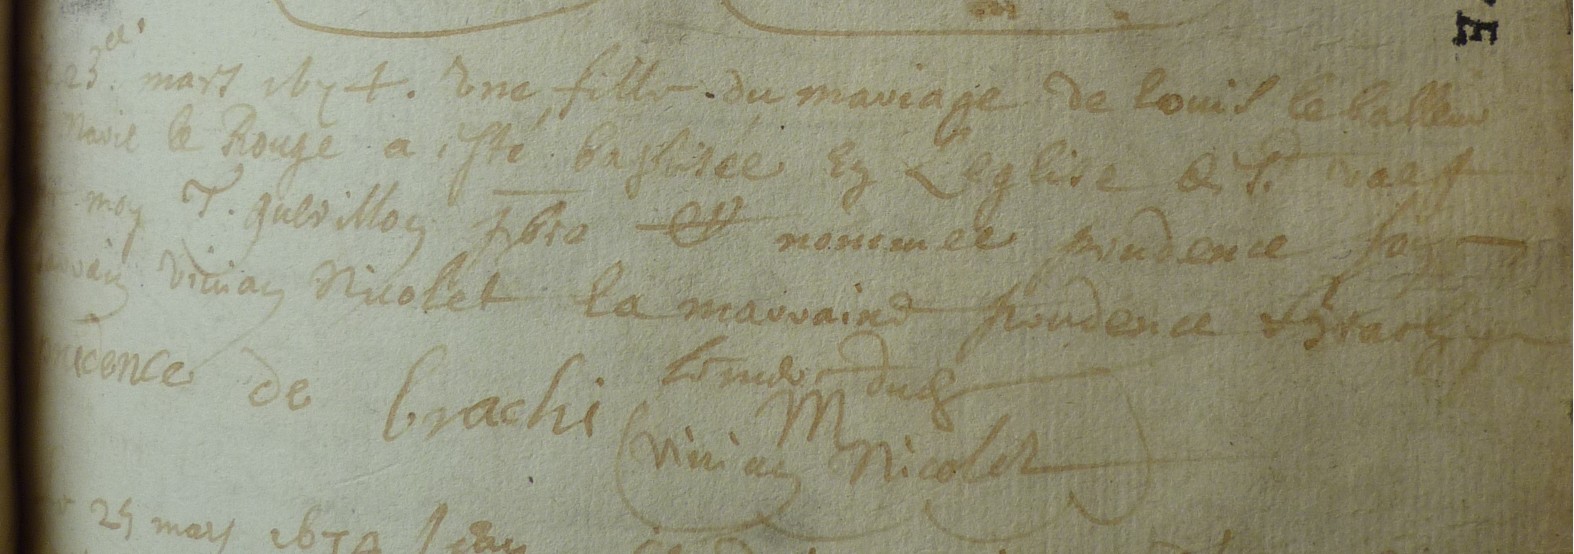 23.e mars 1674. Une fille du mariage de louis le balleur
Marie le Rouge a esté baptisée en Leglise de St. vaast
moy T. guerillon pbre & nommee prudence son
parrain vivian Nicolet la marraine prudence
prudence de brachi
vivian Nicolet
25 mars 1674 Jean